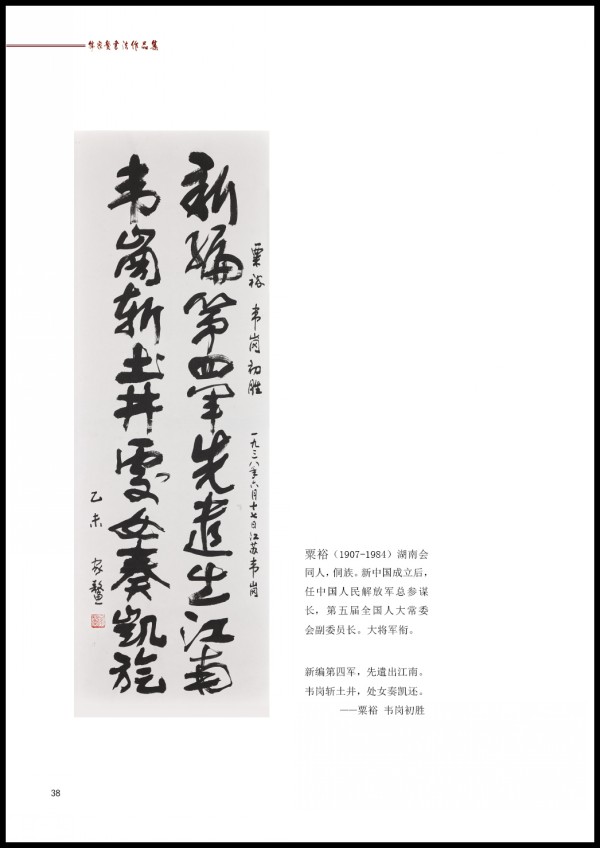 家鳌书法作品集
粟裕 韦岗初胜 一九三八年六月十七日江苏韦岗
新編第四军先遣出江南
韦崗斩土井處女奏凱旋
乙未 家鳌
粟裕（1907-1984）湖南会
同人，侗族。新中国成立后，
任中国人民解放军总参谋
长，第五届全国人大常委
会副委员长。大将军衔。
新编第四军，先遣出江南。
韦岗斩土井，处女奏凯还。
——粟裕 韦岗初胜
38